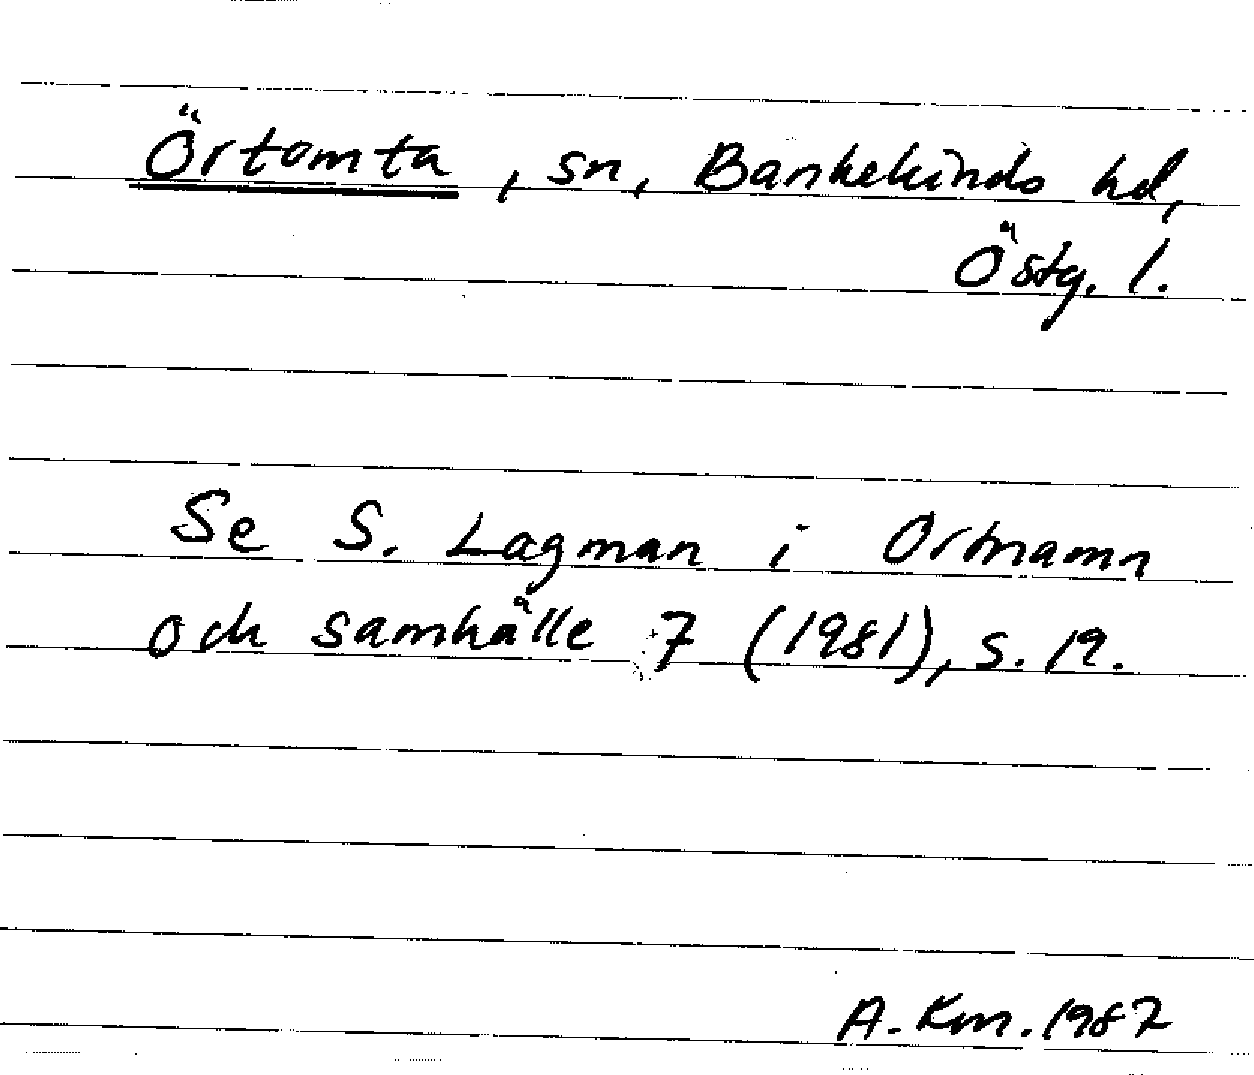 Örtomta, sn, Bankekinds hd,
Östg. l.
Se S. Lagman i Ortnamn
och samhälle 7 (1981), s. 19.
A. Km. 1987